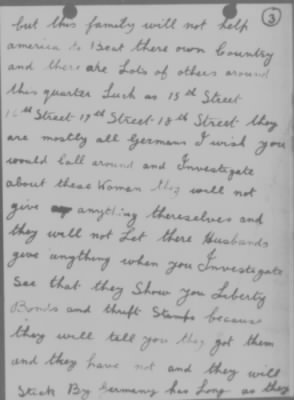 3
but this family will not help
america to Beat there own Country
and there are Lots of others around
this quarter Such as 15th Street
16th Street 17th Street 18th Street they
are mostly all Germans I wish you
would Call around and Investigate
about these Woman they will not
give anything thereselves and
they will not Let there Husbands
give anything when you Investigate
See that they Show you Liberty
Bonds and thrift Stamps because
they will tell you they got them
and they have not and they will
Stick By Germany has Long as they